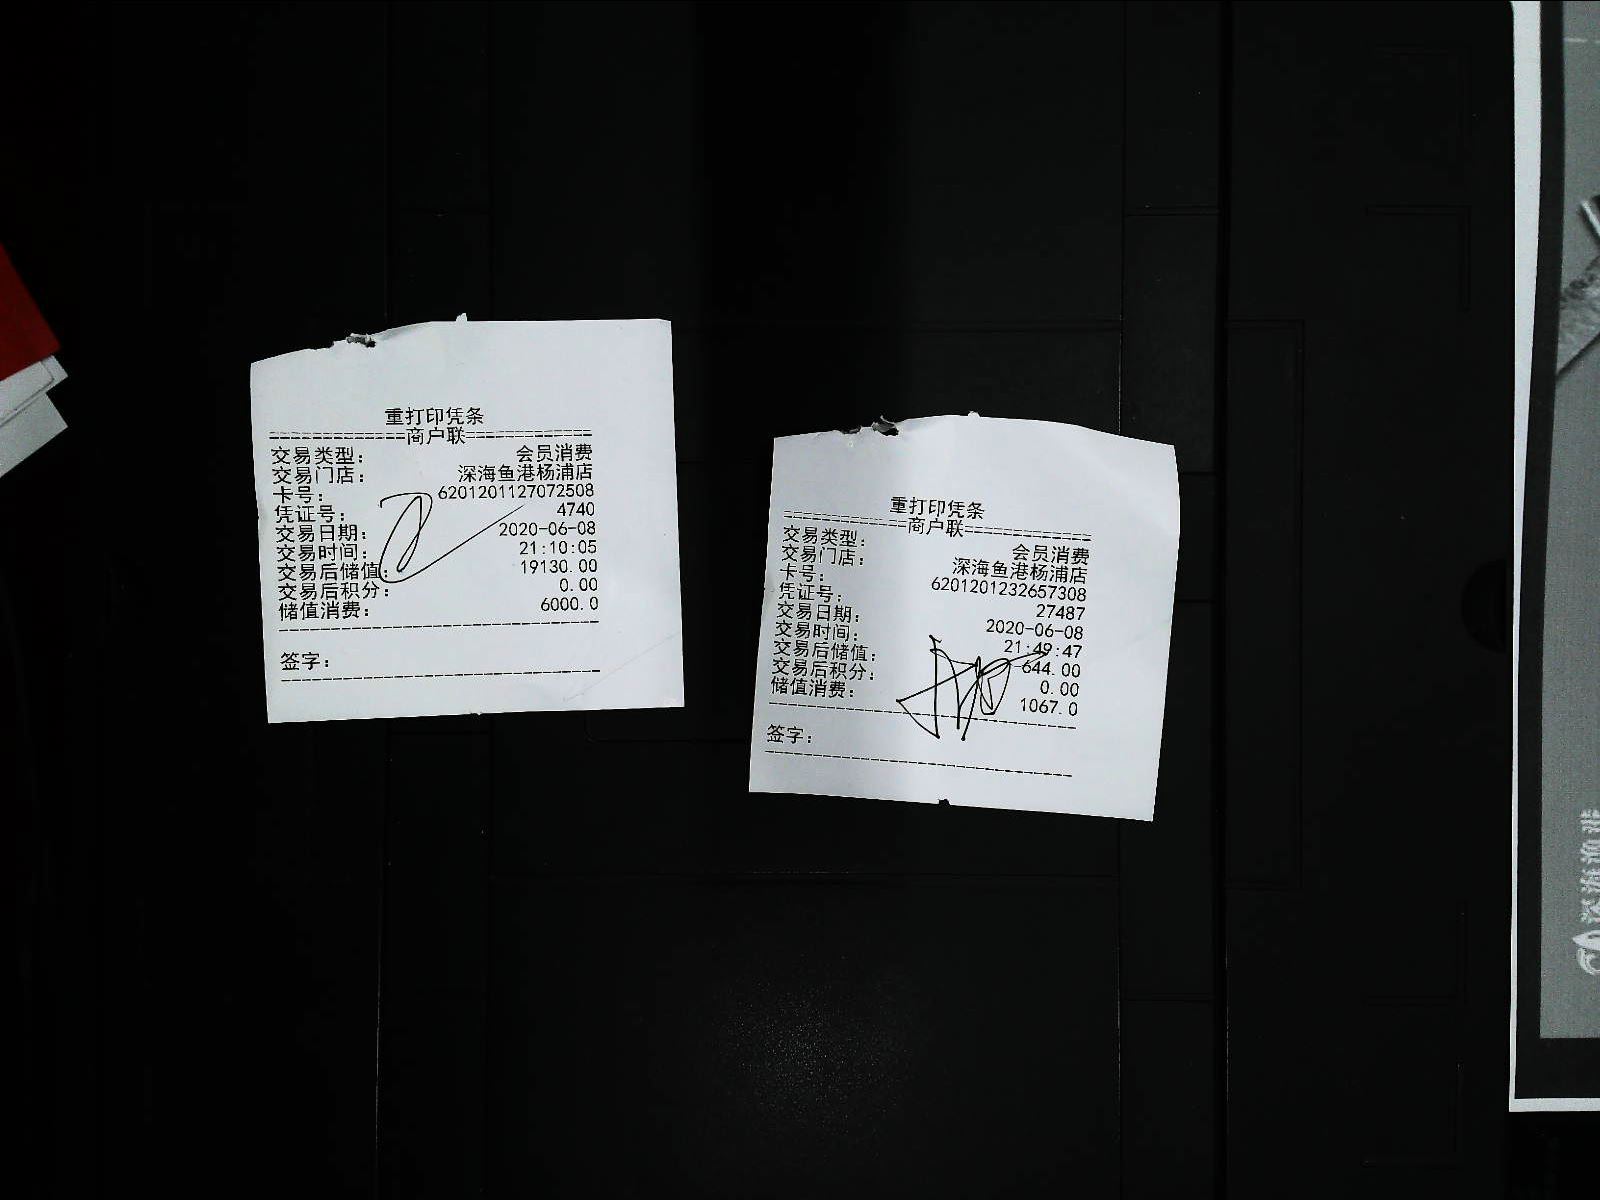 重打印凭条
商户联
交易类型： 会员消费
交易门店： 深海鱼港杨浦店
卡号： 6201201127072508
凭证号： 4740
交易日期： 2020-06-08
交易时间： 21:10:05
交易后储值： 19130.00
交易后积分： 0.00
储值消费： 6000.0
签字：
重打印凭条
商户联
交易类型： 会员消费
交易门店： 深海鱼港杨浦店
卡号： 6201201232657308
凭证号： 27487
交易日期： 2020-06-08
交易时间： 21:49:47
交易后储值： 644.00
交易后积分： 0.00
储值消费： 1067.0
签字：